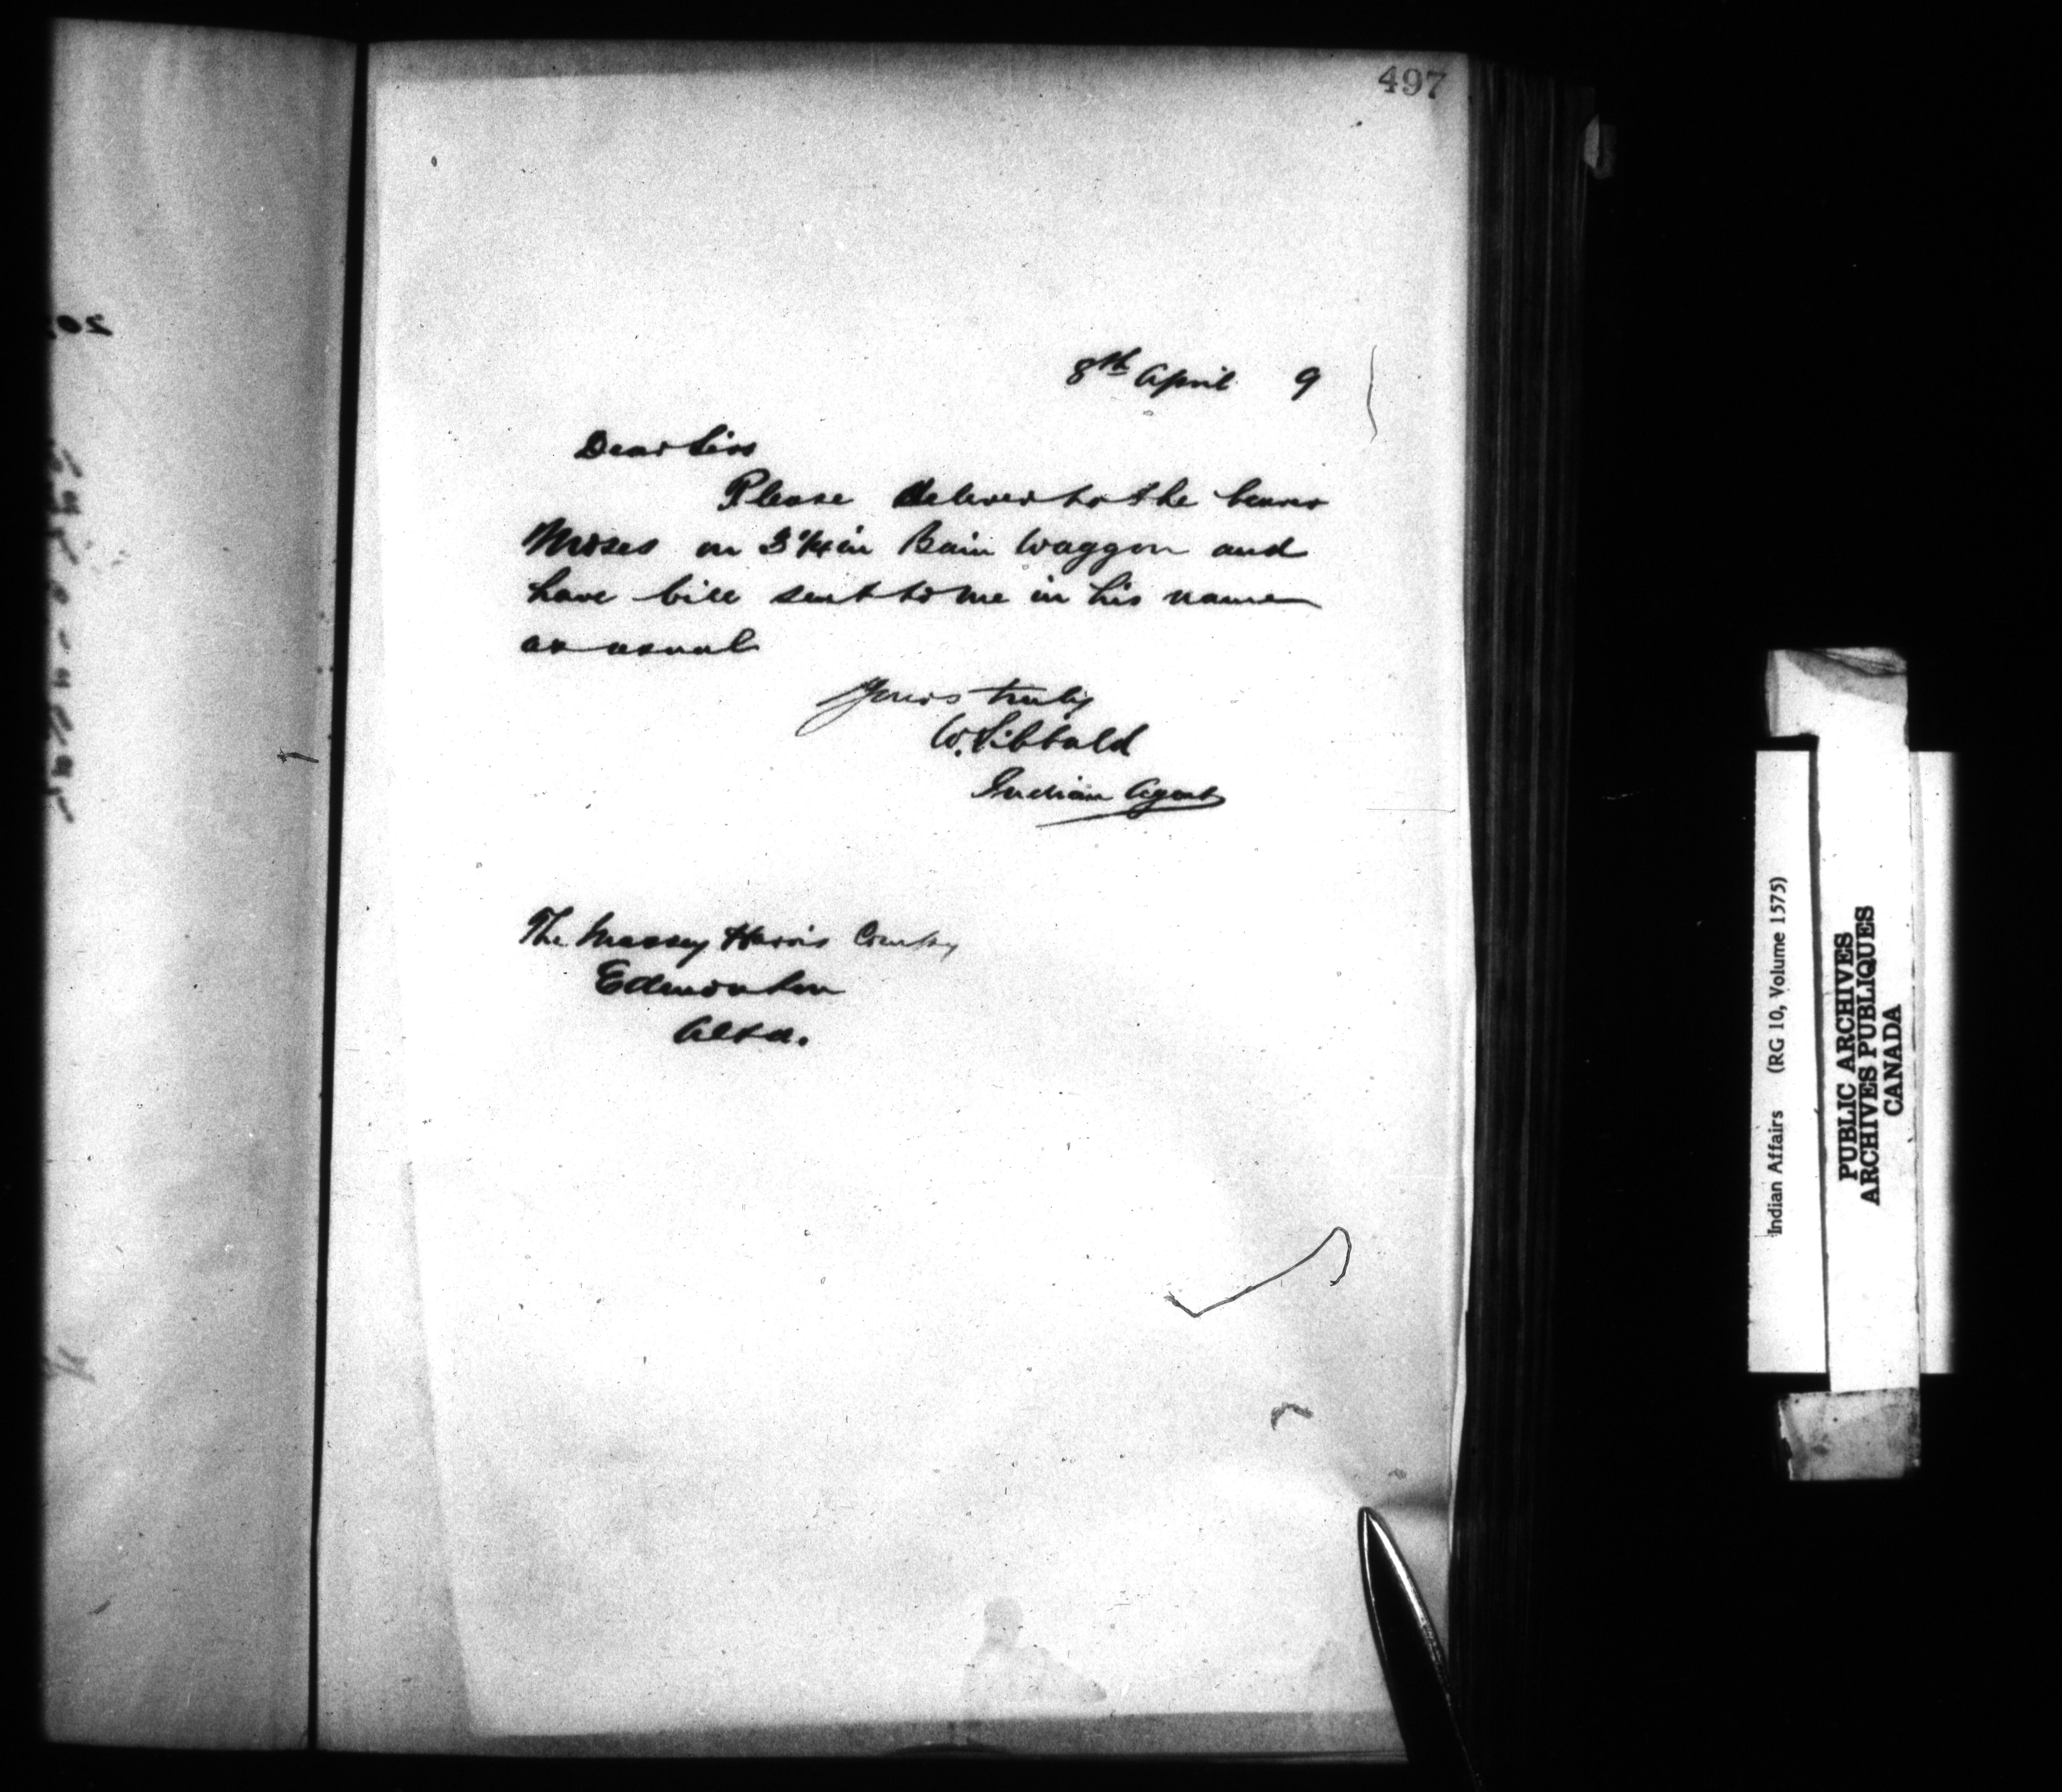 497
8th April 9
Dear Sirs
Please deliver to the bearer
Moses on 3 1/4 in Bain Waggon and
have bill sent to me in his name
as usual
Yours truly
W. Sibbald
Indian Agent
The Massey Harris Compy
Edmonton
Alta.
Indian Affairs (RG 10, Volume 1575)
PUBLIC ARCHIVES
ARCHIVES PUBLIQUES
CANADA